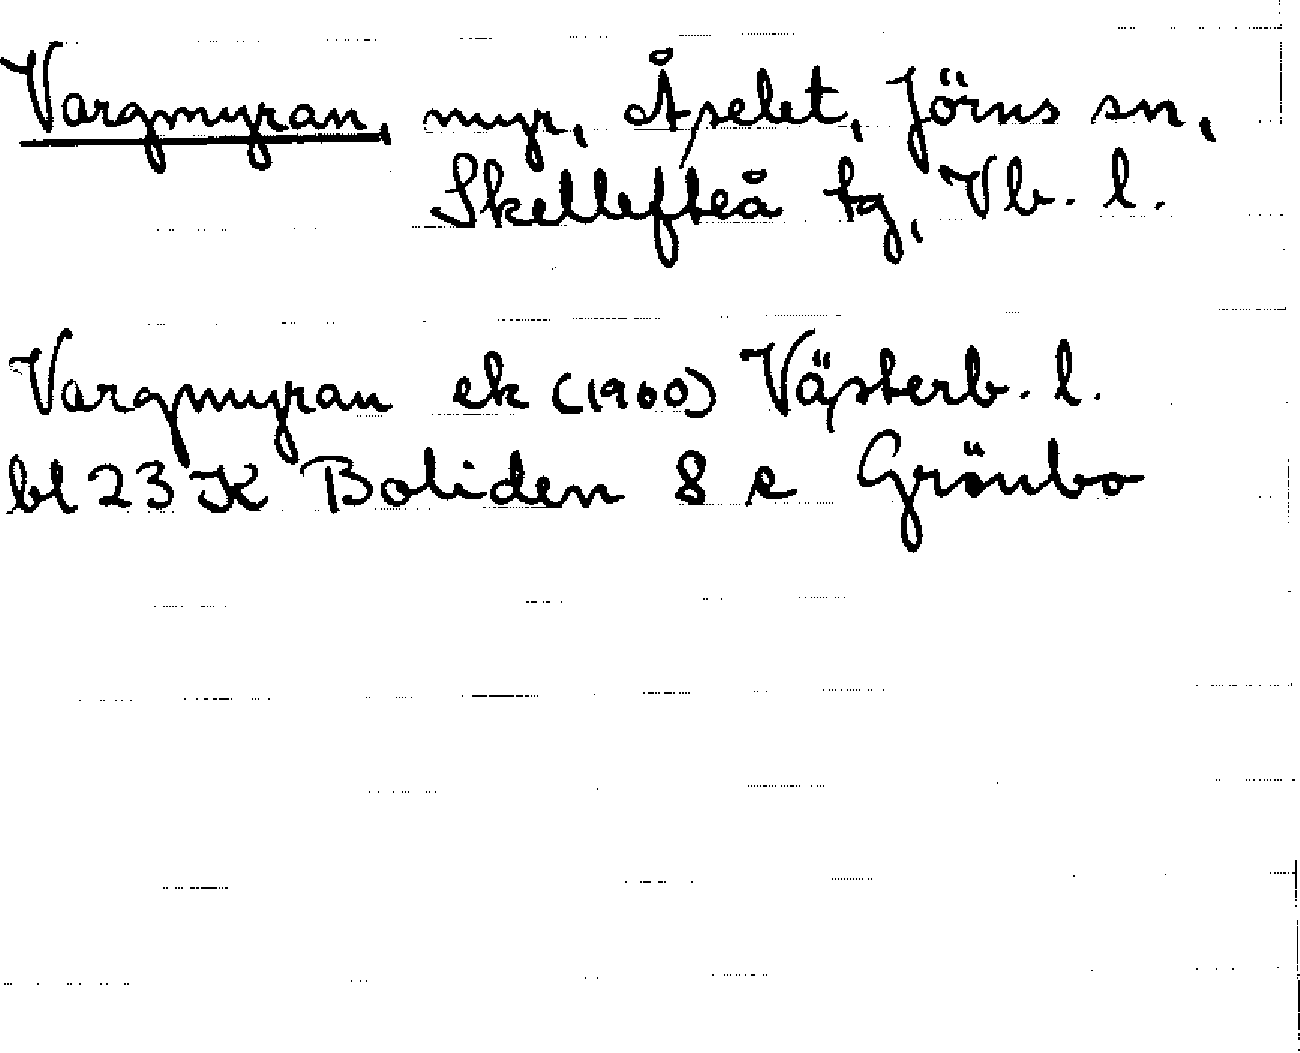 Vargmyran, myr, Åselet, Jörns sn,
Skellefteå tg, Vb. l.
Vargmyran ek (1960) Västerb. l.
bl 23 K Boliden 8 e Grönbo